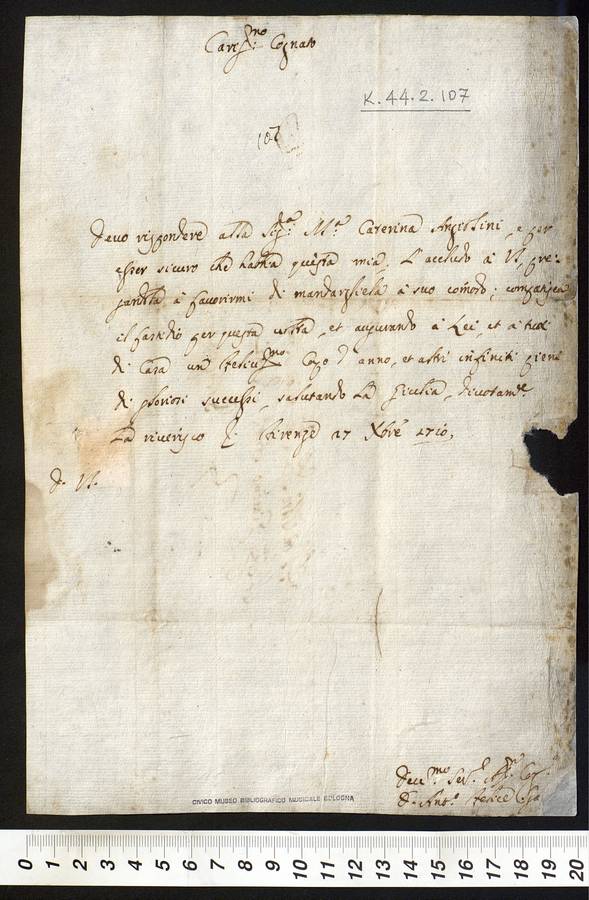 Cares:mo Cognato
K.44.2.107
107
Devo rispondere alla Sig:ra Ma: Caterina Angiolini, e per
esser sicuro che habbia questa mia, l'accludo à VS. pre:
gandola à favorirmi di mandargliela à suo comodo;
il fastidio per questa volta, et augurando à Lei, et à tutti
di Casa un felicis:mo Capo d'anno, et altri infiniti pieni
di gloriosi successi, salutando la Giulia, divotam:te
La riverisco Firenze 27 Xbre 1710,
D. VS.
Dev:mo Ser:
D. Ant:o Felice
CIVICO MUSEO BIBLIOGRAFICO MUSICALE BOLOGNA
0 1 2 3 4 5 6 7 8 9 10 11 12 13 14 15 16 17 18 19 20